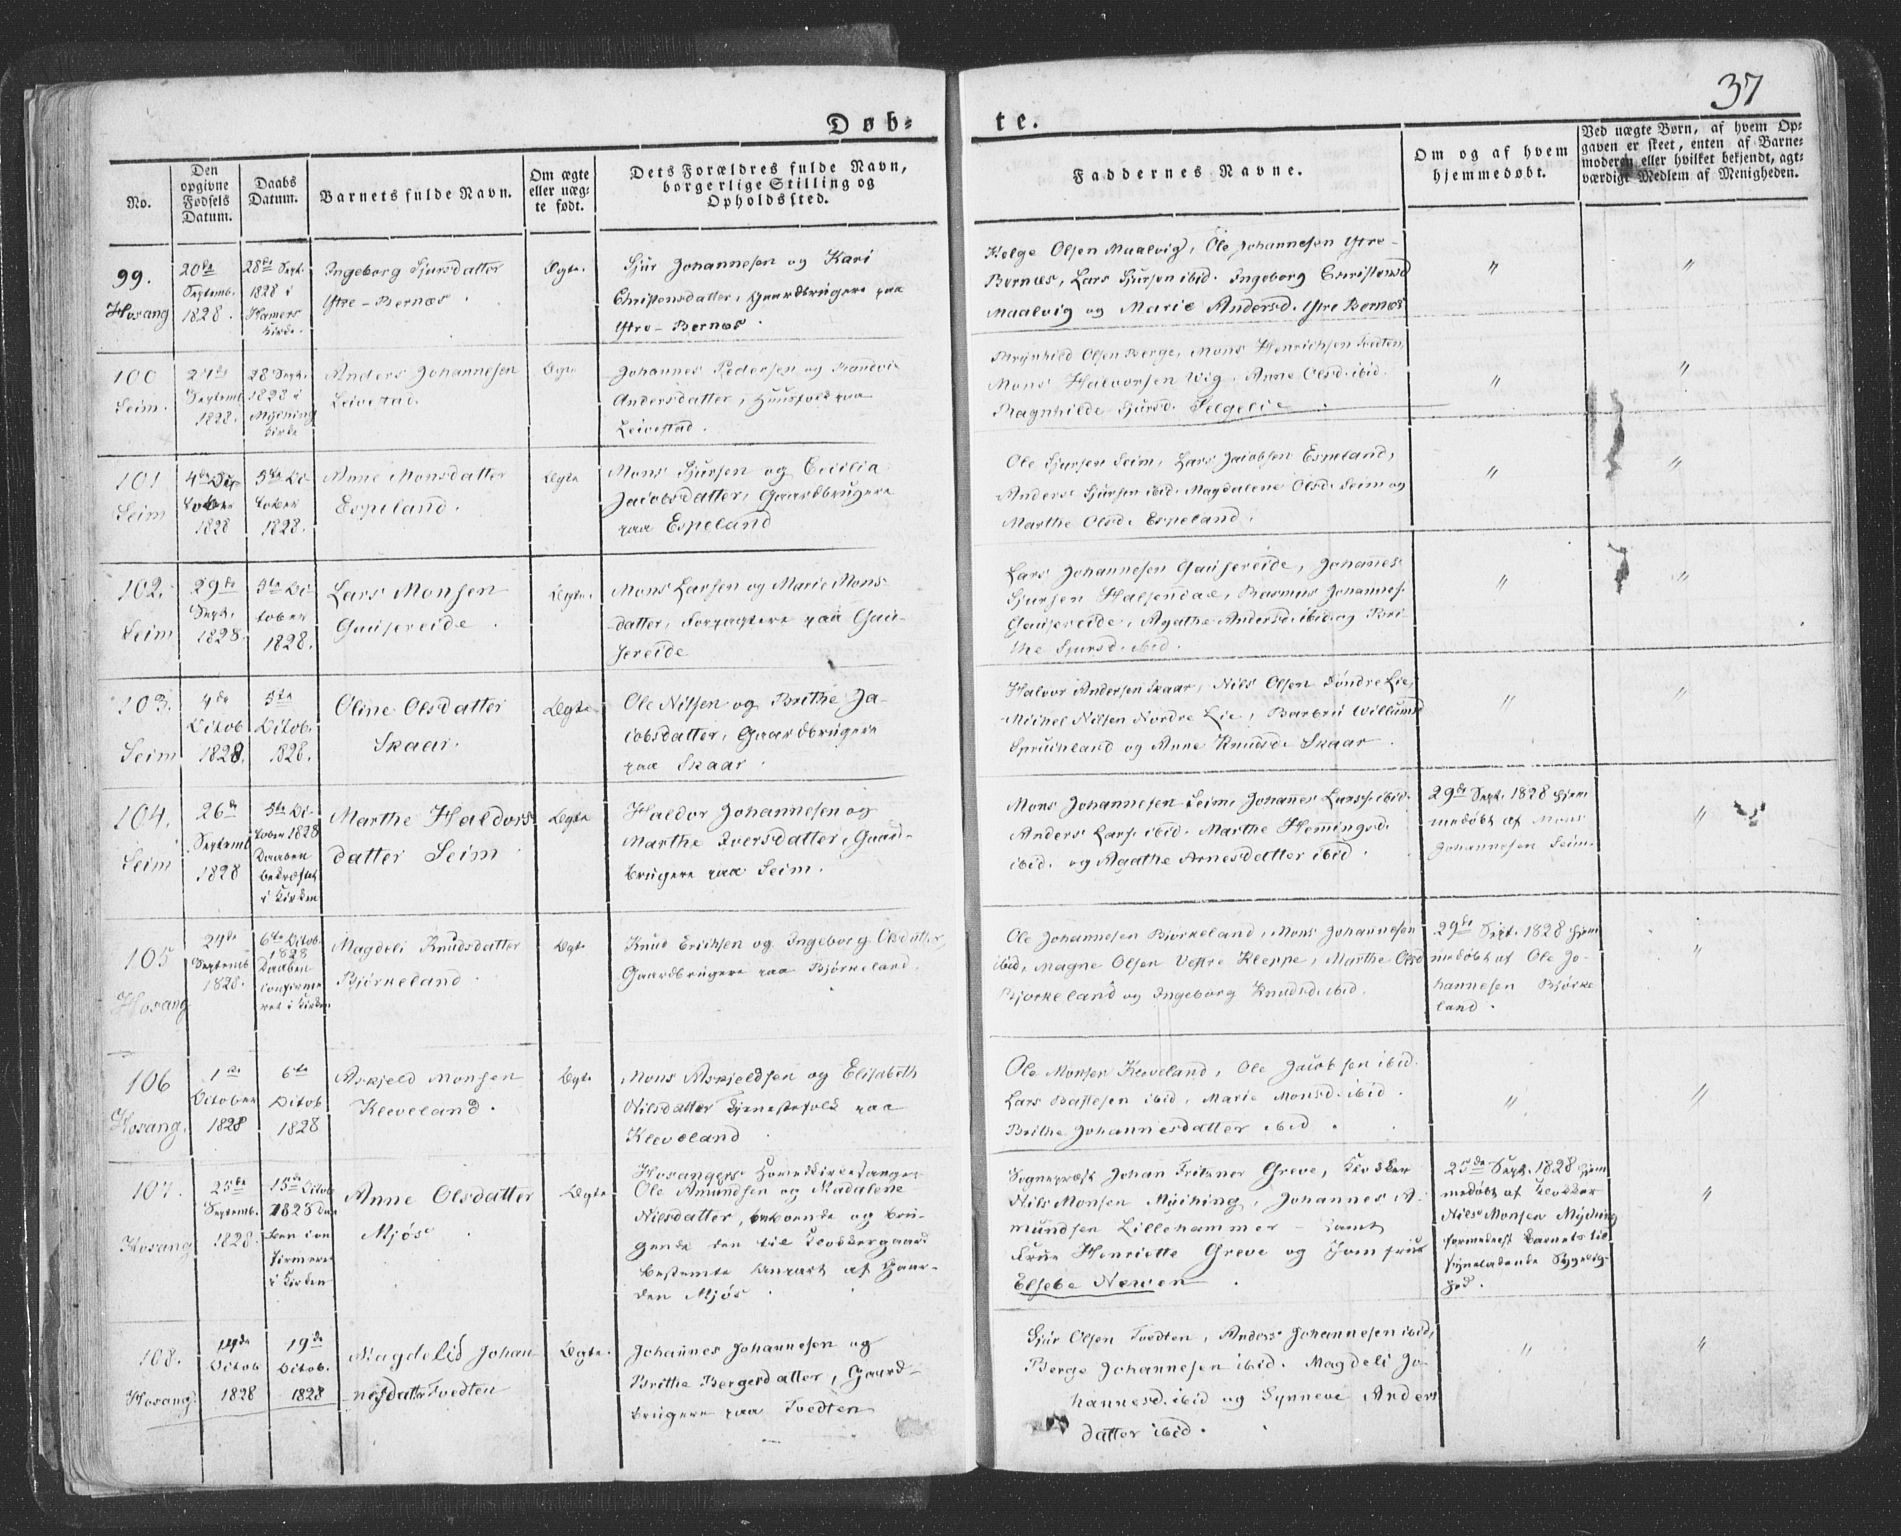 37
Døb-
te.
No.
Den
opgivne
Fødsels
Datum.
Daabs
Datum.
Barnets fulde Navn.
Om ægte
eller uæg-
te født.
Dets Forældres fulde Navn,
borgerlige Stilling og
Opholdssted.
Faddernes Navne.
Om og af hvem
hjemmedøbt.
Ved uægte Børn, af hvem Op-
gaven er skeet, enten af Barne-
moderen eller hvilket bekjendt, agt-
værdigt Medlem af Menigheden.
99.
Hosang
20de
Septemb.
1828.
28de Sept.
1828 i
Hamers
Kirke
Ingeborg Sjursdatter
Ytre-Bernæs.
Ægte.
Sjur Johannesen og Kari
Christensdatter, Gaardbrugere paa
Ytre-Bernæs.
Helge Olsen Maalvig, Ole Johannesen Ytre-
Bernæs, Lars Sjursen ibid. Ingeborg Christensd
Maalvig og Marie Andersd. Ytre Bernæs
"
"
100
Seim.
Septemb
1828.
28 Sept.
1828 i
Myching
Kirke
Anders Johannesen
Leivestad.
Ægte
Johannes Pedersen og Randvi
Andersdatter, Huusfolk paa
Leivestad.
Brynhild Olsen Berge, Mons Henrichsen Tvedten,
Mons Halvorsen Wig, Anne Olsd. ibid.
Ragnhilde Sjursd. Helgelie.
"
"
101
Seim
4de Oc
tober
1828
5te Oc
tober
1828.
Anne Monsdatter
Espeland.
Ægte
Mons Sjursen og Cecilia
Jacobsdatter, Gaardbrugere
paa Espeland
Ole Sjursen Seim, Lars Jacobsen Espeland,
Anders Sjursen ibid. Magdalene Olsd. Seim og
Marthe Olsd. Espeland.
"
"
102.
Seim
29de
Sept.
1828.
5te Oc
tober
1828.
Lars Monsen
Gausereide.
Ægte.
Mons Larsen og Marie Mons-
datter, Forpagtere paa Gau-
sereide
Lars Johannesen Gausereide, Johannes
Sjursen Halsendal, Rasmus Johannes.
Gausereide, Agathe Andersd. ibid. og Bri-
the Sjursd. ibid.
"
"
103.
Seim
4de
Octob
1828.
5te
Octob.
1828.
Oline Olsdatter
Skaar.
Ægte
Ole Nilsen og Brithe Ja-
cobsdatter, Gaardbrugere
paa Skaar.
Halvor Andersen Skaar, Nils Olsen Søndre Lie,
Michel Nilsen Nordre Lie, Barbru Willumsd
og Anne Knudsd. Skaar.
"
"
104.
Seim
26de
Septemb
1828
5te Oc
tober 1828
Daaben
bekræftet
i Kirken
Marthe Haldors
datter Seim.
Ægte
Haldor Johannesen og
Marthe Iversdatter, Gaard-
brugere paa Seim.
Mons Johannesen Seim, Johannes Larss. ibid.
Anders Lars. ibid. Marthe Hemingsd.
ibid. og Agathe Arnesdatter ibid.
29de Sept. 1828 hjem
medøbt af Mons
Johannesen Seim.
"
105
Hosang
24de
Septemb
1828.
6te Octob.
1828
Daaben
confirme
ret i Kirken
Magdeli Knudsdatter
Bjørkeland.
Ægte
Knud Erichsen og Ingeborg Olsdatter,
Gaardbrugere paa Bjørkeland.
Ole Johannesen Bjørkeland, Mons Johannesen
ibid, Magne Olsen Vestre Kleppe, Marthe Olsd
Bjørkeland og Ingeborg Knudsd. ibid.
29de Sept. 1828 hjem
medøbt af Ole Jo-
hannesen Bjørke
land.
"
106
Hosang.
1ste
October
1828
6te
Octob
1828
Askjeld Monsen
Kleveland.
Ægte
Mons Askjeldsen og Elisabeth
Nilsdatter Tjenestefolk paa
Kleveland.
Ole Monsen Kleveland, Ole Jacobsen ibid.
Lars Bastesen ibid, Marie Monsd. ibid.
Brithe Johannesdatter ibid.
"
"
107.
Hosang
25de
Septemb.
1828.
15de Octob
1828 Daa
ben con
firmeret
i Kirken
Anne Olsdatter
Mjøs.
Ægte
Hosangers Hovedkirkesanger
Ole Amundsen og Madalene
Nilsdatter, beboende og bru-
gende den til Klokkergaard
bestemte Anpart af Gaar-
den Mjøs.
Sognepræst Johan Fritzner Greve, Klokker
Nils Monsen Myching, Johannes A-
mundsen Lillehammer - samt
Frue Henriette Greve og Jomfrue
Elsebe Newen.
25de Sept. 1828 hjem
medøbt af Klokker
Nils Monsen Myching
formedelst Barnets til-
syneladende Svagelig-
hed.
"
108.
Hosang.
14de
Octob
1828
19de
Octob.
1828
Magdelid Johan
nesdattr Tvedten
Ægte.
Johannes Johannesen og
Brithe Bergesdatter, Gaard-
brugere paa Tvedten
Sjur Olsen Tvedten, Anders Johannesen ibid,
Berge Johannesen ibid. Magdeli Jo-
hannesd. ibid og Synneve Anders
datter ibid.
"
"